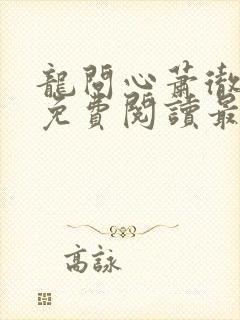 龍問心蕭徹
免費閱讀最
高詠